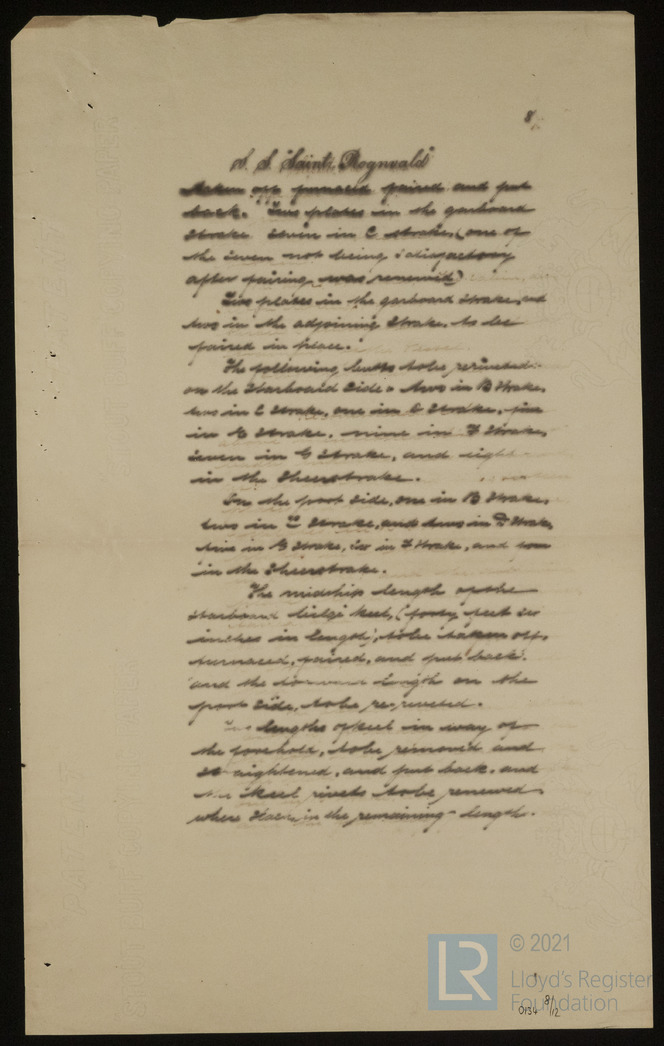 8
S. S. "Saint Rognvald"
taken off furnaced faired and put
back. Two plates in the garboard
strake seven in C strake, (one of
the seven not being satisfactory
after fairing was renewed)
Two plates in the garboard strake, and
two in the adjoining strake, to be
faired in place.
The following butts to be reriveted
on the starboard side. two in B strake,
two in C strake, one in strake, five
in strake, nine in F strake,
seven in G strake, and eight
in the sheerstrake.
In the port side, one in B strake,
two in C strake, and two in D strake,
in strake, six in F strake, and
in the sheerstrake.
The midship length of the
starboard bilge keel, (forty feet six
inches in length), to be taken off,
furnaced, faired, and put back.
and the forward length on the
port side, to be re-riveted.
Two lengths of keel in way of
the forehold, to be removed and
straightened, and put back, and
the keel rivets to be renewed
where slack, in the remaining length.
LR
© 2021
Lloyd's Register
Foundation
0134 8/12